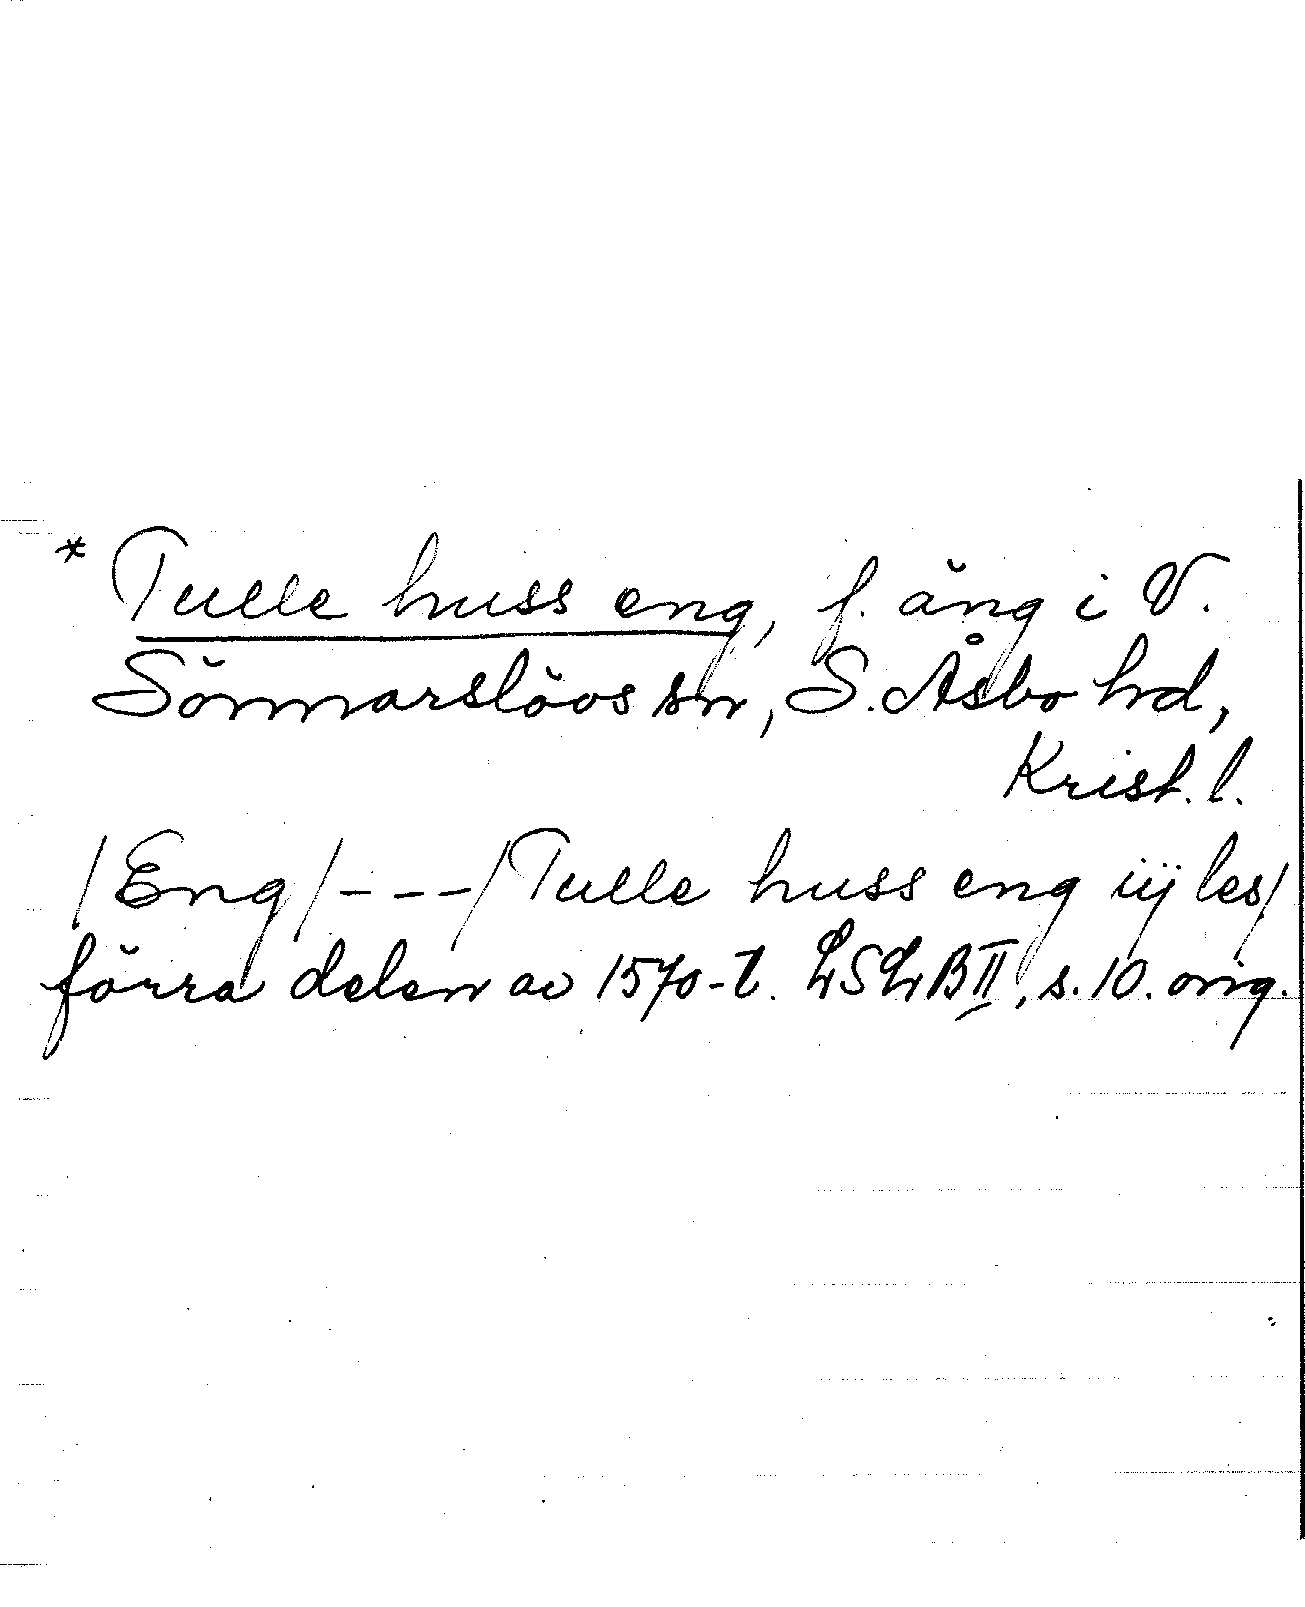 * Tulle huss eng, f. äng i V.
Sönnarslövs sn, S. Åsbo hd,
Krist. l.
/Eng/---/Tulle huss eng iij les/
förra delen av 1570-t. LSLB II, s. 10. orig.